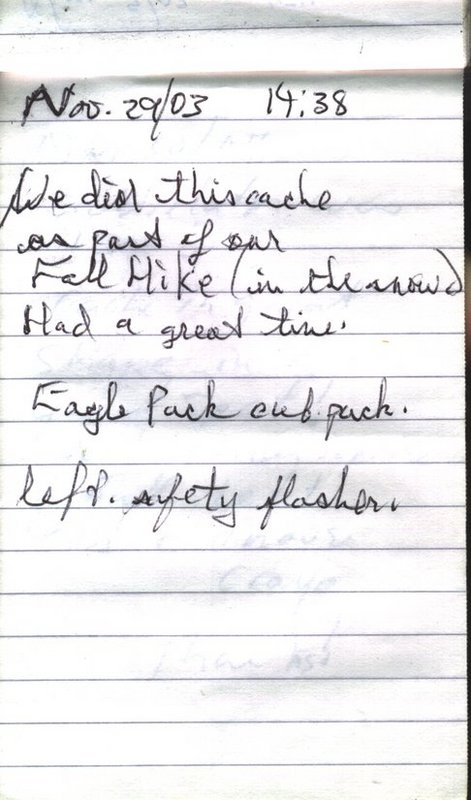 Nov. 29/03 14:38
We did this cache
as part of our
Fall Hike (in the snow)
Had a great time.
Eagle Pack cub pack.
left. safety flasher.